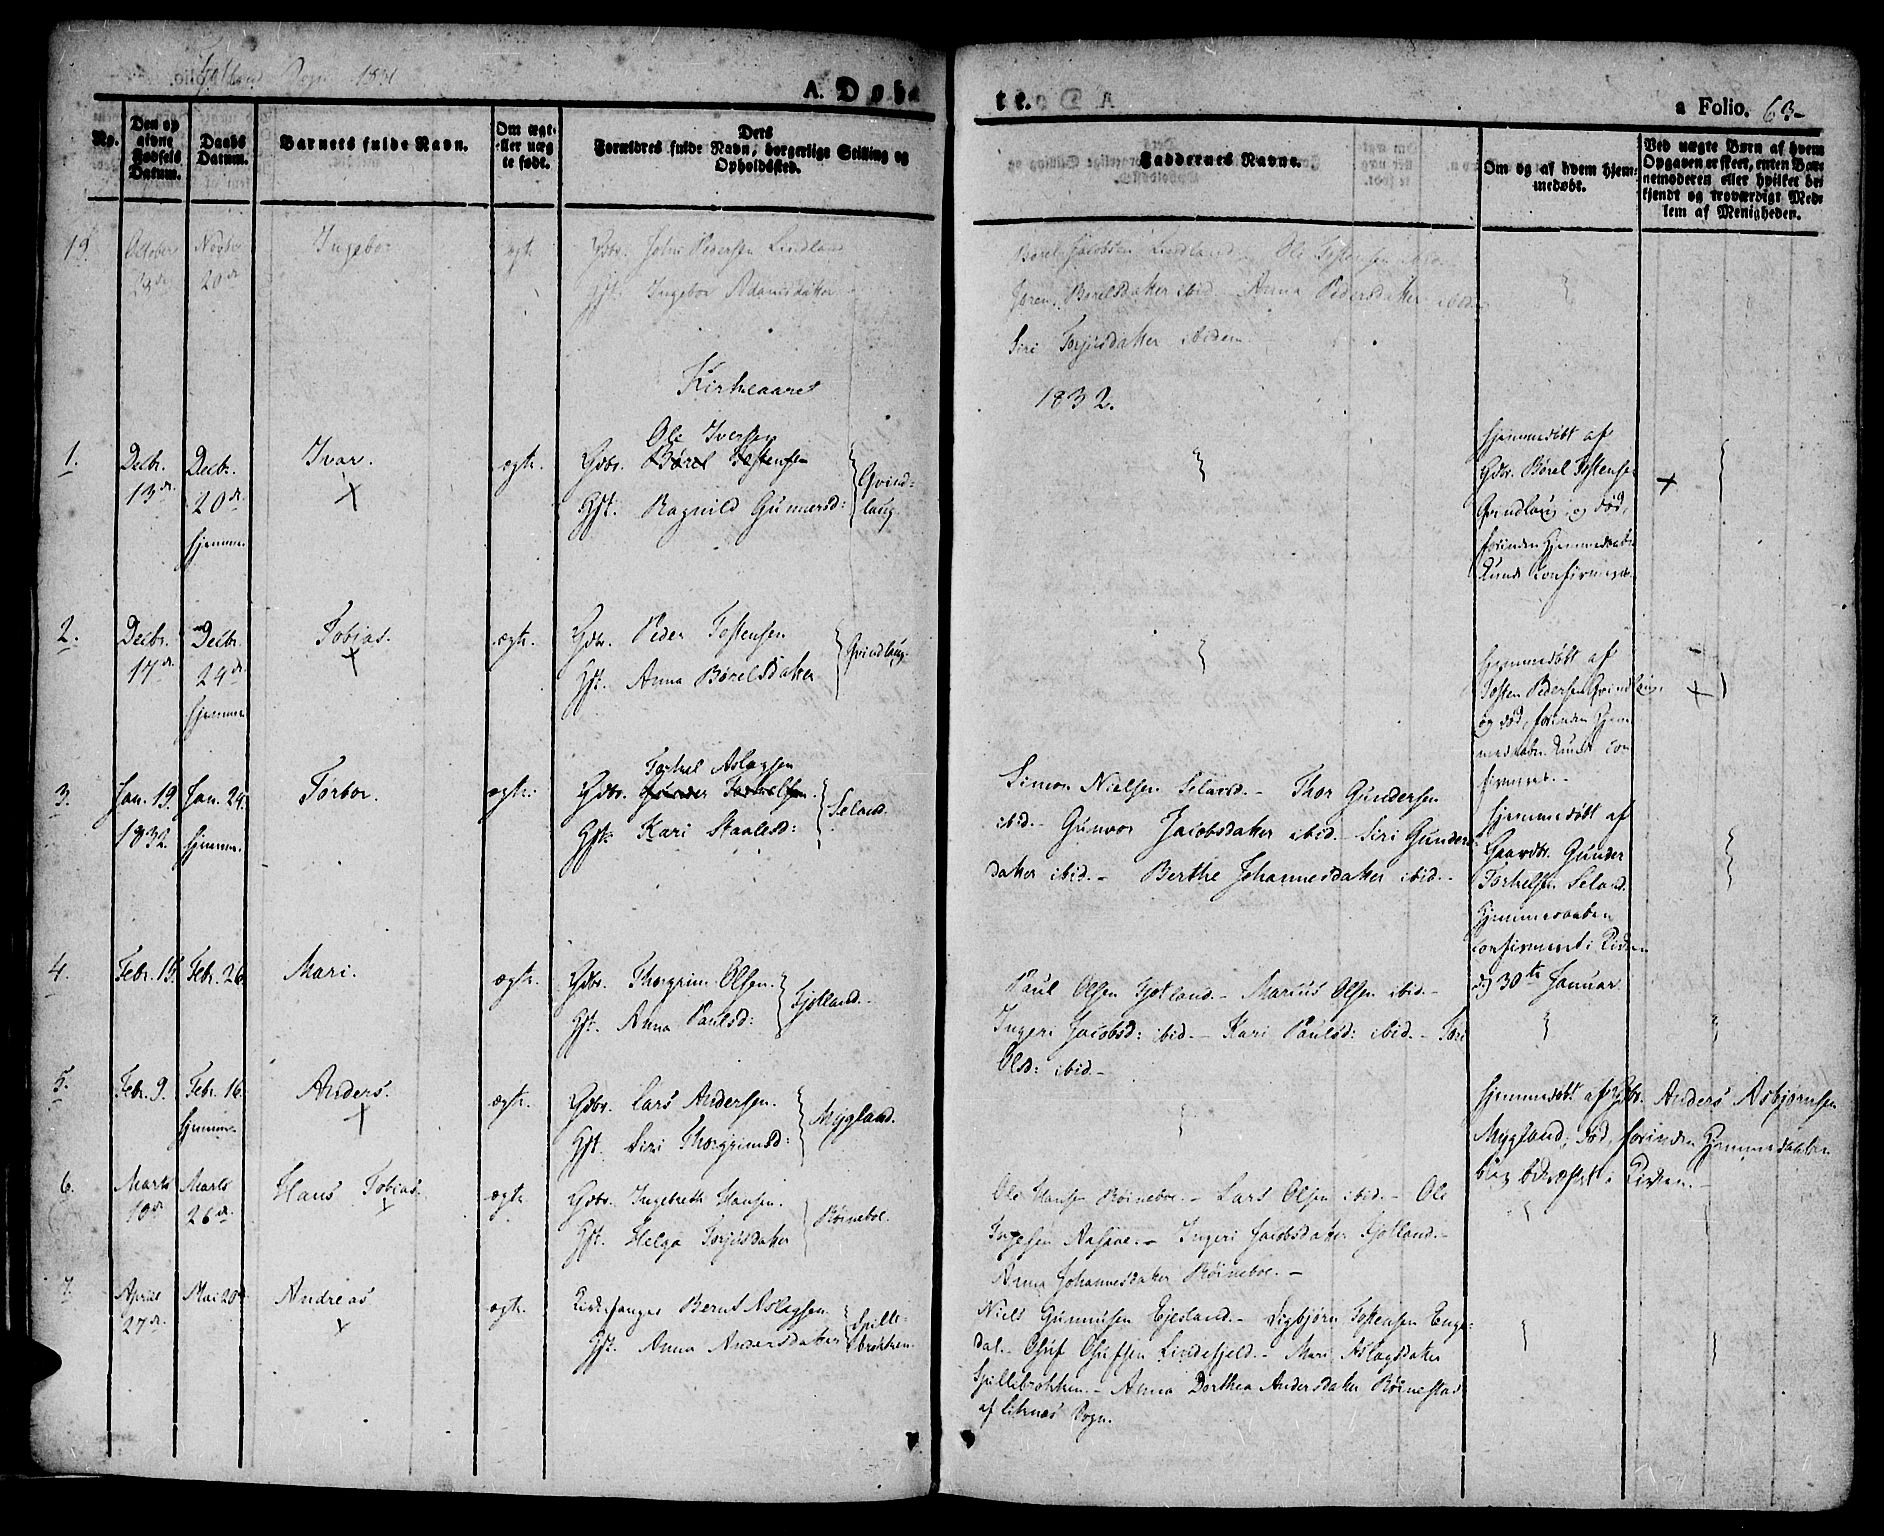 Fjotland Sogn 1831
A. Døbte.
a Folio. 63-
No.
Den opgivne Fødsels Datum.
Daabs Datum.
Barnets fulde Navn.
Om ægte eller uægte født.
Forældres fulde Navn, Ders borgerlige Stilling og Opholdssted.
Faddernes Navne.
Om og af hvem hjemmedøbt.
Ved uægte Børn af hvem Opgaven er skeet, enten Barnemoderen eller hvilket bekjendt og troværdigt Medlem af Menigheden.
19.
October
Novbr
20de
Ingebor
ægte
Gdbr. John Pedersen Lindland
Gft. Ingebor Adamsdatter
Børel Jacobsen Lindland. Ole Tostensen ibid.
Børelsdatter ibid. Anna Pedersdatter ibid.
Siri Torjusdatter ibidem
Kirkeaaret
1832.
1.
Decbr.
13de
Decbr.
20de
hjemme
Ivar.
ægte.
Ole Iversen
Gdbr. Børel Tostensen
Gft. Ragnild Gunnersd:
Qvind-
laug.
hjemmedøbt af
Gdbr. Børel Tostensen
Qvindlaug og død,
forinden Hjemmedaaben
kunde confirmeres.
2.
Decbr.
17de
Decbr.
24de
hjemme
Tobias.
ægte.
Gdbr. Peder Tostensen
Gft. Anna Børelsdatter
Qvindlaug.
hjemmedøbt af
Tosten Pedersen Qvindlaug.
og død, forinden Hjem-
medaaben kunde con-
firmeres.-
3.
Jan. 19.
1832.
Jan. 24.
hjemme.
Torbor.
ægte.
Torkel Aslagsen
Gdbr. Gunder Torkelsen.
Gft. Kari Staalesd:
Seland.
Simon Nielsen Seland.- Thor Gundersen
ibid.- Gunvor Jacobsdatter ibid.- Siri Gunders-
datter ibid.- Berthe Johannesdatter ibid.-
hjemmedøbt af
Gaardbr. Gunder
Torkelsen Seland.
Hjemmedaaben
confirmeret i Kirken
d. 30te Januar.
4.
Febr. 15.
Febr. 26.
Mari.
ægte.
Gdbr. Thorgrim Olsen.
Gft. Anna Paulsd:
Fjotland.-
Paul Olsen Fjotland.- Marcus Olsen ibid.-
Ingeri Jacobsd: ibid.- Kari Paulsd: ibid.- Tori
Olsd: ibid.-
5.
Febr. 9.
Febr. 16.
hjemme.
Anders.
ægte.
Gdbr. Lars Andersen.
Gft. Siri Thorgrimsd:
Mygland.
hjemmedøbt af Gdbr. Anders Asbjørnsen
Mygland; død, forinden Hjemmedaaben
blev bekræftet i Kirken.-
6.
Marts
10de
Marts
26de
Hans Tobias.
ægte
Gdbr. Ingebreth Hansen.
Gft. Helga Torjusdatter
Rørneboe.
Ole Hansen Rørneboe.- Lars Olsen ibid.- Ole
Ingeri Jacobsdatter Fjotland.-
Anna Johannesdatter Rørneboe.-
7.
April
27de
Mai 20de
Andreas
ægte.
Kirkesanger Bernt Aslagsen
Gft. Anna Andersdatter
Spille-
brokken
Niels Gunnufsen Ejesland.- Sigbjørn Tostensen Enge-
dal.- Oluf Olufsen Lindefjeld.- Mari Aslagsdatter
Spillebrokken.- Anna Dorthea Andersdatter Rørnestad
af Liknes Sogn.